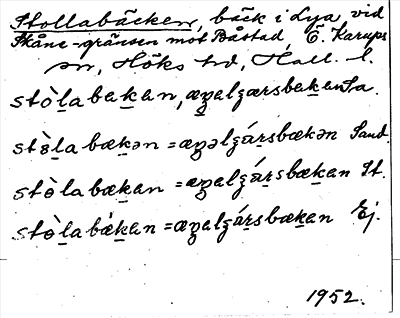 Stollabäcken, bäck i Lya, vid
Skåne-gränsen mot Båstad, Ö. Karups
sn, Höks hd, Hall. l.
stòlabakan, æŋalʒarsbakan Sa.
stòlabækən = æŋəlʒársbækən Sand.
stòlabækan = æŋalʒársbækan St.
stòlabækan = æŋalʒársbækan Ej.
1952.